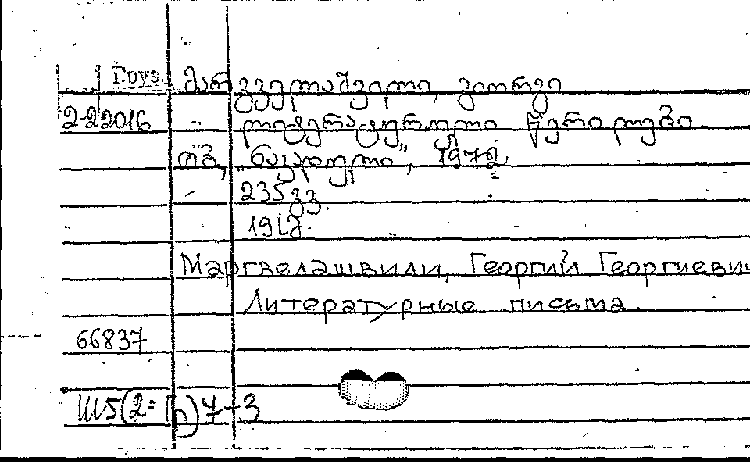 Груз. მარგველაშვილი, გიორგი
2-22016 ლიტერატურული წერილები
თბ., "ნაკადული", 1972
235 გვ.
19 ს მ.
Маргвелашвили, Георгий Георгиевич
Литературные письма
66837
Ш5(2=Гр)7-3